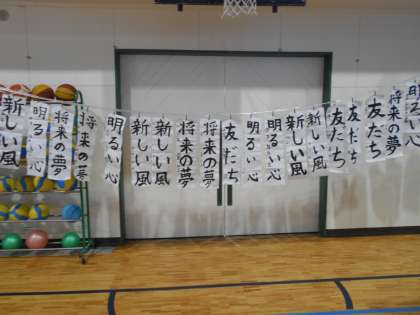 新しい風
明るい心
将来の夢
将来の夢
明るい心
新しい風
新しい風
将来の夢
将来の夢
友だち
明るい心
明るい心
新しい風
新しい風
友だち
友だち
友だち
将来の夢
明るい心